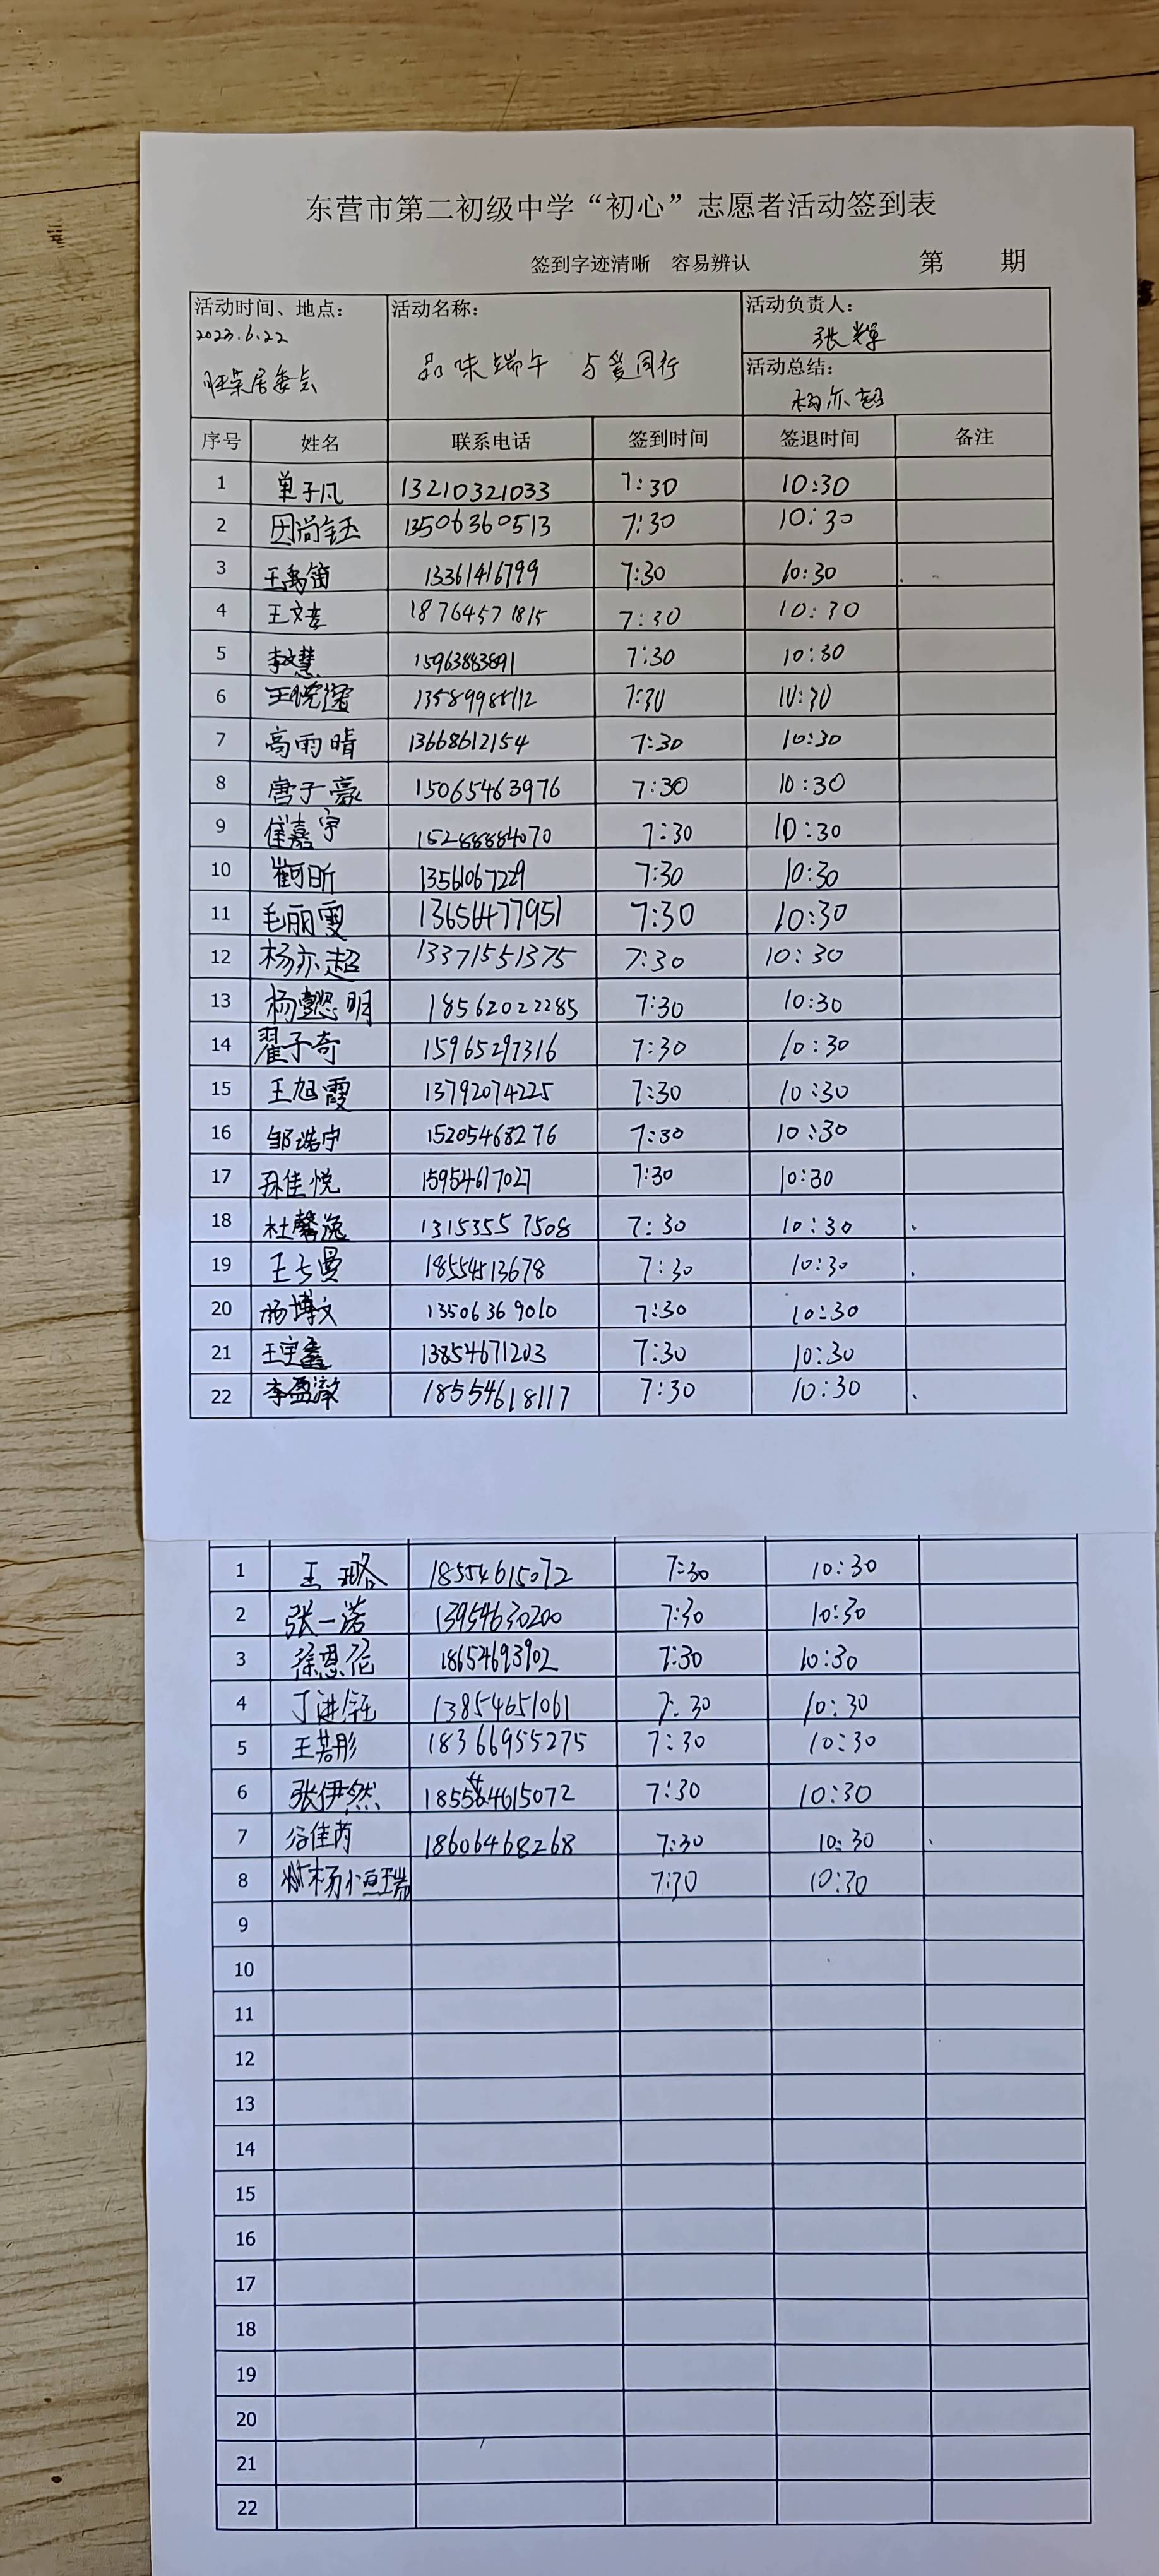 东营市第二初级中学“初心”志愿者活动签到表
签到字迹清晰 容易辨认 第 期
活动时间、地点： 活动名称： 活动负责人：
2023.6.22 张辉
旺荣居委会 品味端午 与爱同行 活动总结：
杨亦超
序号 姓名 联系电话 签到时间 签退时间 备注
1 单子凡 13210321033 7:30 10:30
2 田尚钰 13506360513 7:30 10:30
3 王禹笛 13361416799 7:30 10:30
4 王文孝 18764571815 7:30 10:30
5 李文慧 15963883891 7:30 10:30
6 13589988112 7:30 10:30
7 高雨晴 13668612154 7:30 10:30
8 唐子豪 15065463976 7:30 10:30
9 崔嘉宇 15288884070 7:30 10:30
10 崔珂昕 13561067229 7:30 10:30
11 毛丽雯 13656477951 7:30 10:30
12 杨亦超 13371551375 7:30 10:30
13 杨懿明 18562022285 7:30 10:30
14 翟子奇 15965297316 7:30 10:30
15 王旭霞 13792074225 7:30 10:30
16 邹浩宁 15205468276 7:30 10:30
17 孙佳悦 15954617027 7:30 10:30
18 杜馨逸 13153557508 7:30 10:30
19 18554513678 7:30 10:30
20 杨博文 13506369010 7:30 10:30
21 王宇鑫 13854671203 7:30 10:30
22 李盈澈 18554618117 7:30 10:30
1 王璐 18554615072 7:30 10:30
2 张一诺 13954630200 7:30 10:30
3 徐恩依 18654693902 7:30 10:30
4 丁进钰 13854651061 7:30 10:30
5 王若彤 18366955275 7:30 10:30
6 张伊然 18554615072 7:30 10:30
7 谷佳芮 18606468268 7:30 10:30
8 杨恒瑞 7:30 10:30
9
10
11
12
13
14
15
16
17
18
19
20
21
22